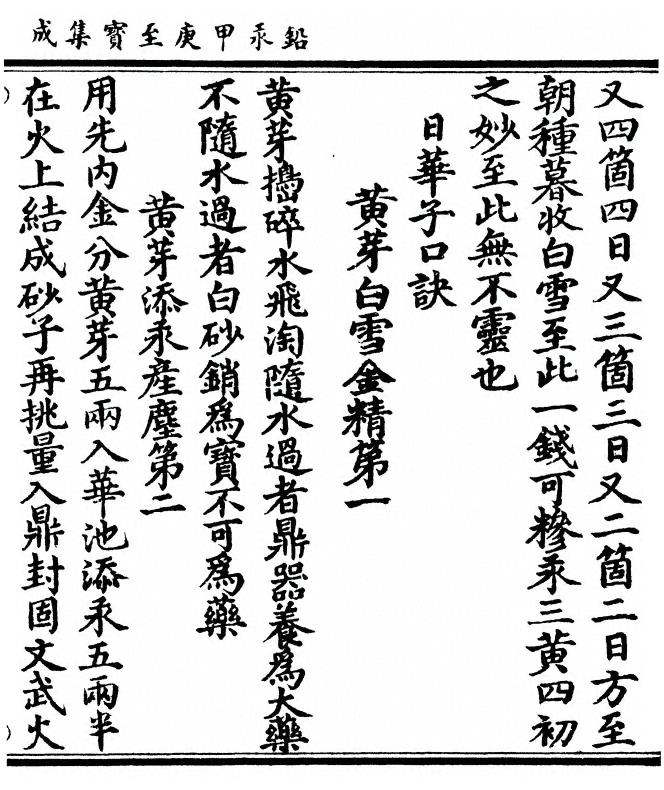 鉛汞甲庚至寶集成
又四箇四日又三箇三日又二箇二日方至
朝種暮收白雪至此一錢可糝汞三黄四初
之妙至此無不靈也
日華子口訣
黄芽白雪金精第一
黄芽搗碎水飛淘隨水過者鼎器養爲大藥
不隨水過者白砂銷爲寶不可爲藥
黄芽添汞産塵第二
用先内金分黄芽五兩入華池添汞五兩半
在火上結成砂子再挑量入鼎封固文武火